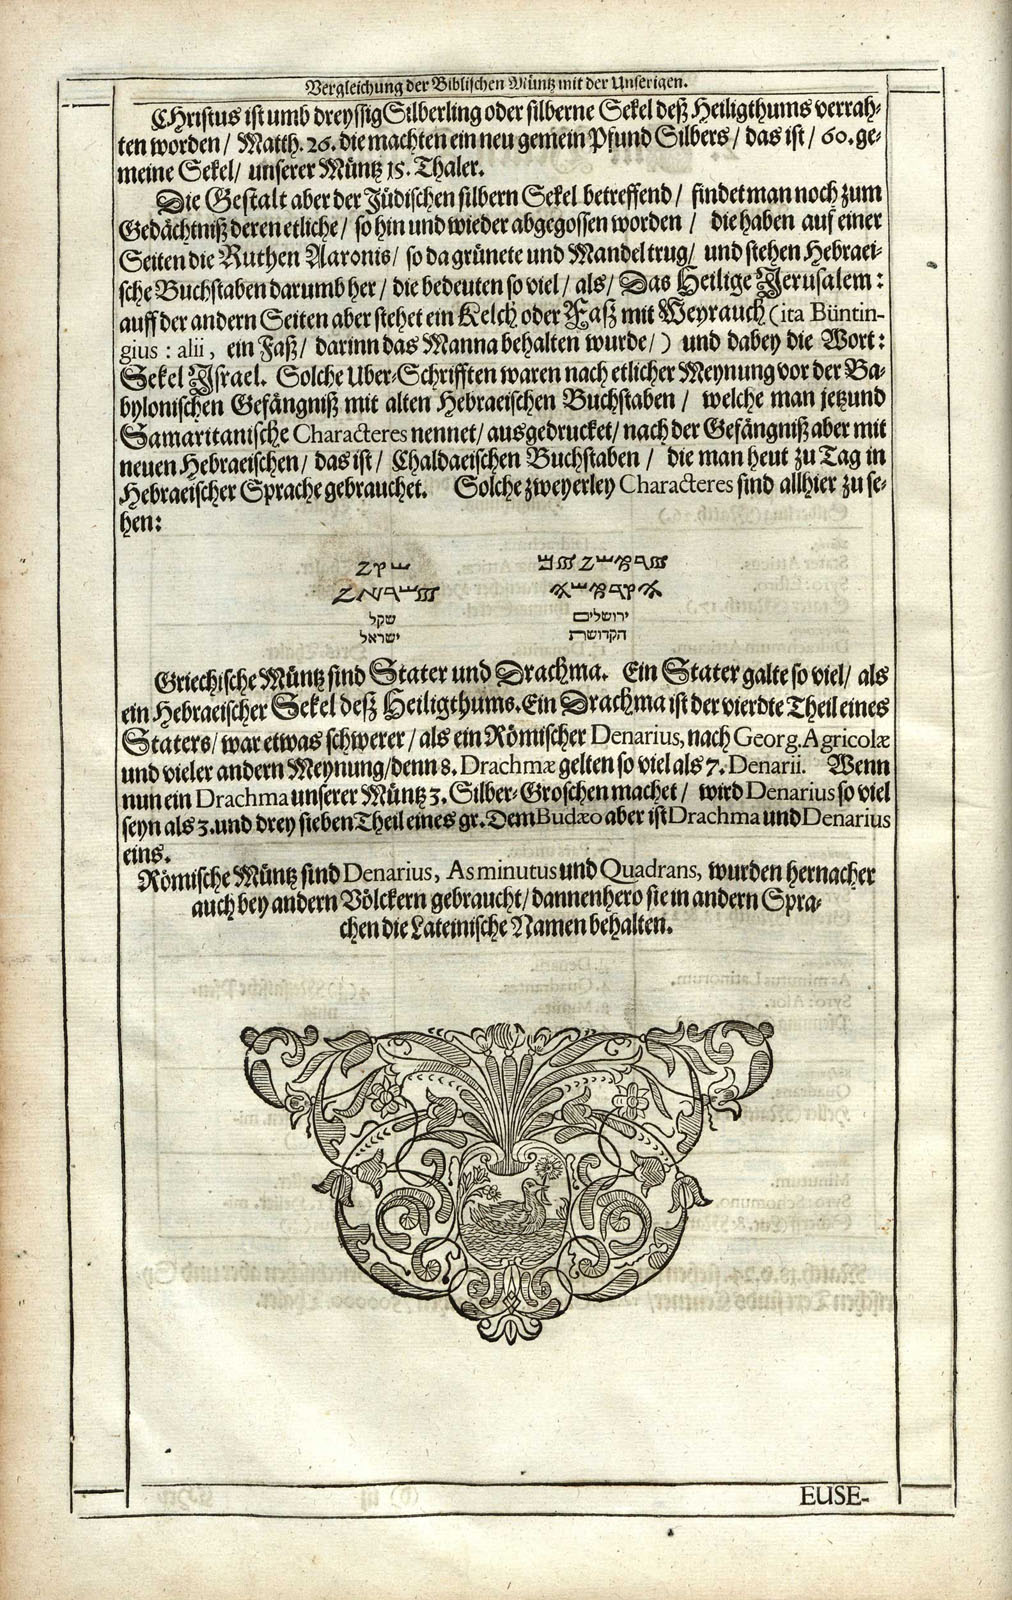 Vergleichung der Biblischen Müntz mit der Unserigen.
CHristus ist umb dreyssig Silberling oder silberne Sekel deß Heiligthums verrah-
ten worden/ Matth. 26. die machten ein neu gemein Pfund Silbers/ das ist/ 60. ge-
meine Sekel/ unserer Müntz 15. Thaler.
Die Gestalt aber der Jüdischen silbern Sekel betreffend/ findet man noch zum
Gedächtniß deren etliche/ so hin und wieder abgegossen worden/ die haben auf einer
Seiten die Ruthen Aaronis/ so da grünete und Mandel trug/ und stehen Hebraei-
sche Buchstaben darumb her/ die bedeuten so viel/ als/ Das Heilige Jerusalem:
auff der andern Seiten aber stehet ein Kelch oder Faß mit Weyrauch (ita Büntin-
gius: alii, ein Faß/ darinn das Manna behalten wurde/) und dabey die Wort:
Sekel Israel. Solche Uber-Schrifften waren nach etlicher Meynung vor der Ba-
bylonischen Gefängniß mit alten Hebraeischen Buchstaben/ welche man jetzund
Samaritanische Characteres nennet/ ausgedrucket/ nach der Gefängniß aber mit
neuen Hebraeischen/ das ist/ Chaldaeischen Buchstaben/ die man heut zu Tag in
Hebraeischer Sprache gebrauchet. Solche zweyerley Characteres sind allhier zu se-
hen:
שקל
ישראל
ירושלים
הקדושת
Griechische Müntz sind Stater und Drachma. Ein Stater galte so viel/ als
ein Hebraeischer Sekel deß Heiligthums. Ein Drachma ist der vierdte Theil eines
Staters/ war etwas schwerer/ als ein Römischer Denarius, nach Georg. Agricolæ
und vieler andern Meynung/ denn 8. Drachmæ gelten so viel als 7. Denarii. Wenn
nun ein Drachma unserer Müntz 3. Silber-Groschen machet/ wird Denarius so viel
seyn als 3. und drey sieben Theil eines gr. Dem Budæo aber ist Drachma und Denarius
eins.
Römische Müntz sind Denarius, As minutus und Quadrans, wurden hernacher
auch bey andern Völckern gebraucht/ dannenhero sie in andern Spra-
chen die Lateinische Namen behalten.
EUSE-